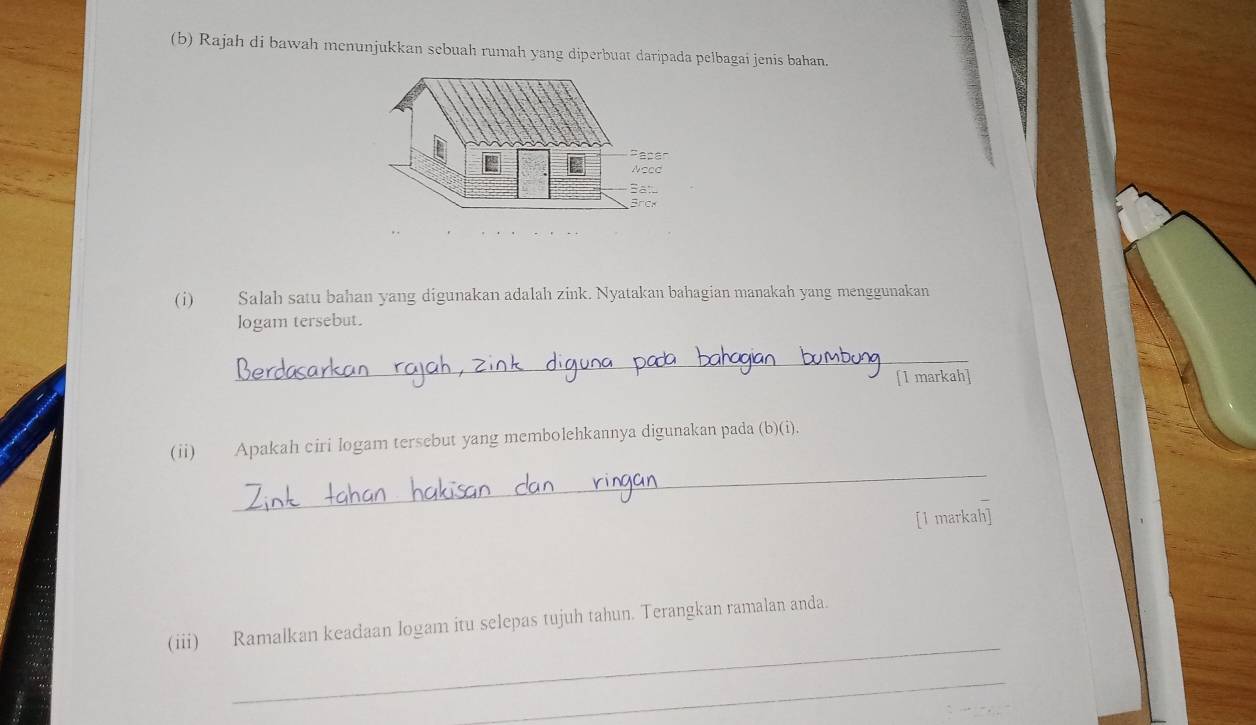 (b) Rajah di bawah menunjukkan sebuah rumah yang diperbuat daripada pelbagai jenis bahan.
Papan
Wood
Batu
Brick
(i) Salah satu bahan yang digunakan adalah zink. Nyatakan bahagian manakah yang menggunakan
logam tersebut.
Berdasarkan rajah, zink diguna pada bahagian bumbung
[1 markah]
(ii) Apakah ciri logam tersebut yang membolehkannya digunakan pada (b)(i).
Zink tahan hakisan dan ringan
[1 markah]
(iii) Ramalkan keadaan logam itu selepas tujuh tahun. Terangkan ramalan anda.